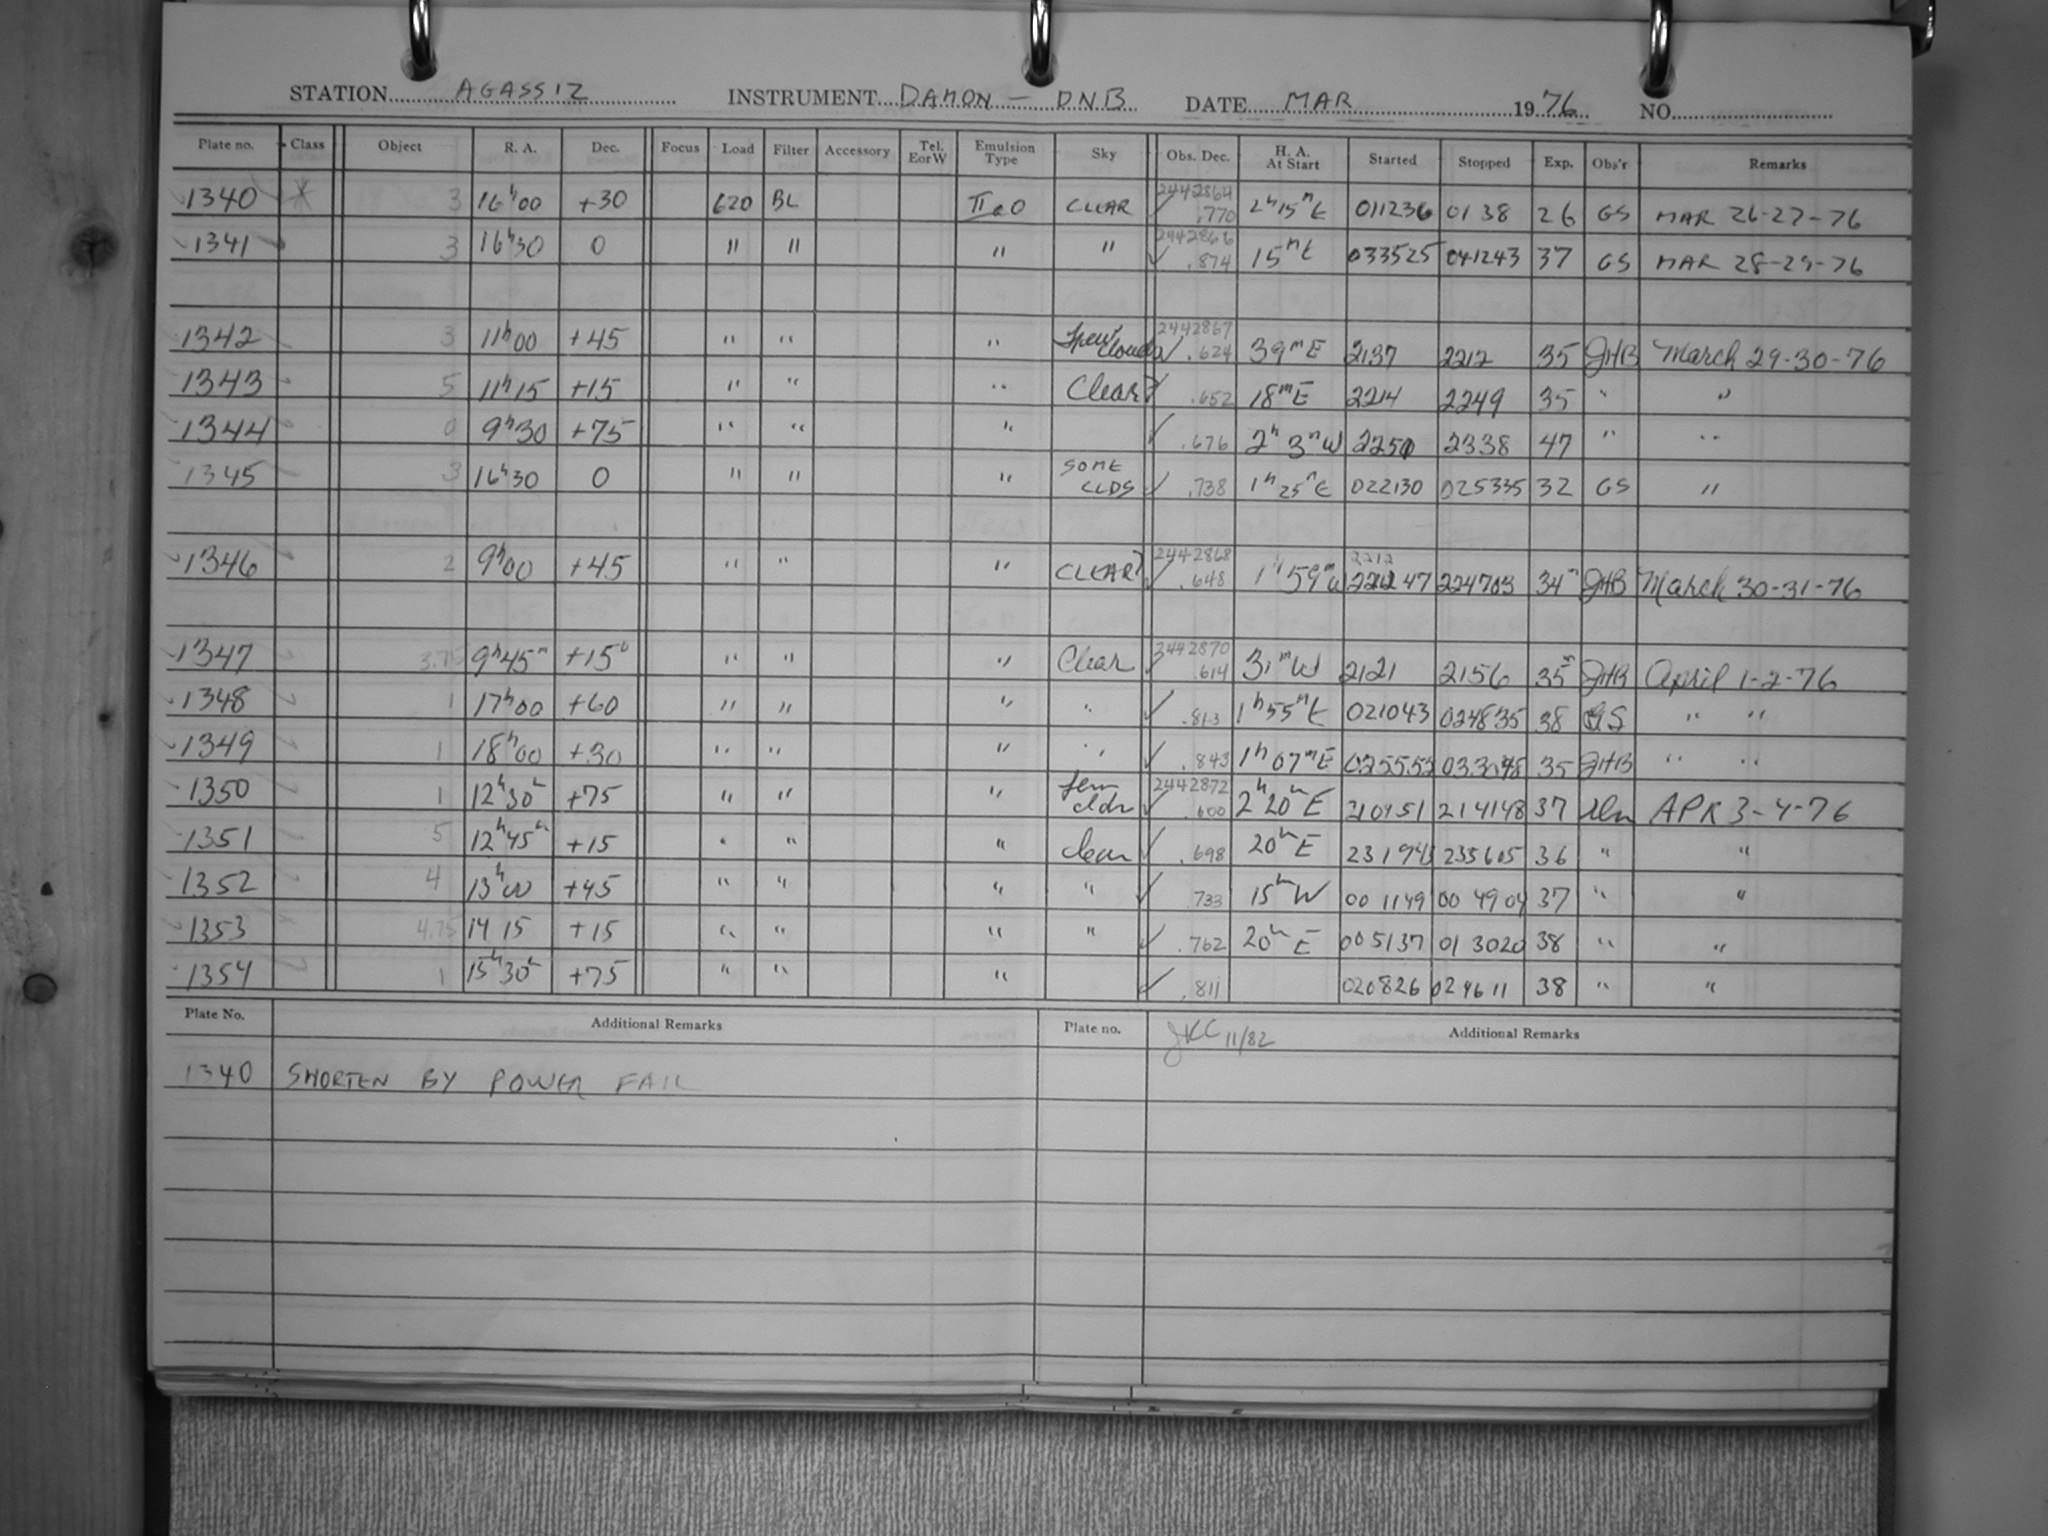 STATION AGASSIZ INSTRUMENT DAMON - DNB DATE MAR 1976 NO.
Plate no. Class Object R. A. Dec. Focus Load Filter Accessory Tel. E or W Emulsion Type Sky Obs. Dec. H. A. At Start Started Stopped Exp. Obs'r Remarks
1340 3 16h00 +30 620 BL IIaO CLEAR 2442864 .770 2h15mE 011236 0138 26 GS MAR 26-27-76
1341 3 16h30 0 " " " " 2442866 .874 15mE 033525 041243 37 GS MAR 28-29-76
1342 3 11h00 +45 " " " 2442867 .624 39mE 2137 2212 35 JHB March 29-30-76
1343 5 11h15 +15 " " " Clear? .652 18mE 2214 2249 35 " "
1344 0 9h30 +75 " " " .676 2h 3mW 2250 2338 47 " "
1345 3 16h30 0 " " " SOME CLDS .738 1h25mE 022130 025335 32 GS "
1346 2 9h00 +45 " " " CLEAR? 2442868 .648 1h59mW 2212 47 224703 34m JHB March 30-31-76
1347 3.75 9h45m +15° " " " Clear 2442870 .614 31mW 2121 2156 35m JHB April 1-2-76
1348 1 17h00 +60 " " " " .813 1h55mE 021043 024835 38 GS " "
1349 1 18h00 +30 " " " " .843 1h07mE 025555 35 JHB " "
1350 1 12h30 +75 " " " few clds 2442872 .600 2h20mE 210451 214148 37 APR 3-4-76
1351 5 12h45 +15 " " " clear .698 20mE 231943 235605 36 " "
1352 4 13h00 +45 " " " " .733 15mW 001149 004904 37 " "
1353 4.75 14 15 +15 " " " " .762 20mE 005137 013020 38 " "
1354 1 15h30 +75 " " " .811 020826 024611 38 " "
Plate No. Additional Remarks Plate no. JKC 11/82 Additional Remarks
1340 SHORTEN BY POWER FAIL